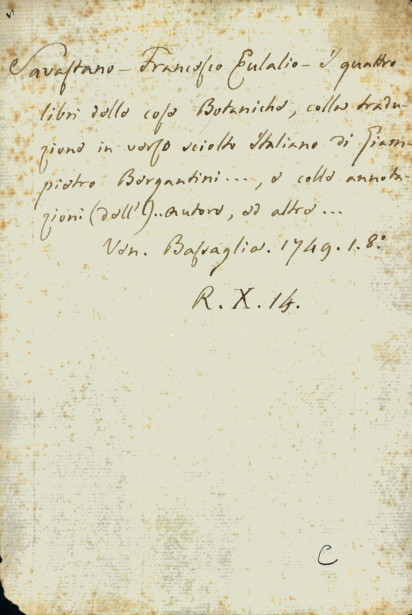 Savastano – Francesco Eulalio – i quattro
libri delle cose Botaniche, colla tradu-
zione in verso sciolto Italiano di Giam-
pietro Bergantini ..., e colle annota-
zioni (dell')..autore, ed altre ...
Ven. Bassaglia. 1749. 1. 8.º
R. X. 14.
C